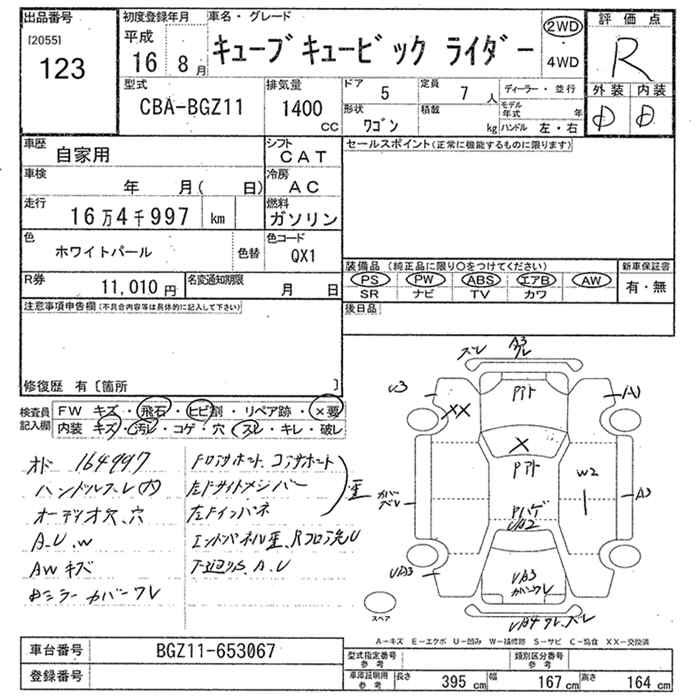 出品番号 初度登録年月 車名・グレード 評価点
[2055] 平成 キューブ キュービック ライダー 2WD R
123 16 8月 4WD
型式 排気量 ドア 5 定員 7人 ディーラー・並行 外装 内装
CBA-BGZ11 1400 cc 形状 ワゴン 積載 kg モデル年式 年 D D
ハンドル 左・右
車歴 自家用 シフト CAT セールスポイント(正常に機能するものに限ります)
車検 年 月( 日) 冷房 AC
走行 16万4千997 km 燃料 ガソリン
色 ホワイトパール 色替 色コード QX1
装備品 (純正品に限り○をつけてください) 新車保証書
R券 11,010円 名変通知期限 月 日 PS PW ABS エアB AW 有・無
SR ナビ TV カワ
注意事項申告欄(不具合内容等は具体的に記入して下さい) 後日品
修復歴 有 [箇所 ]
検査員 FW キズ・飛石・ヒビ割・リペア跡・×要
記入欄 内装 キズ・汚レ・コゲ・穴・スレ・キレ・破レ
ズレ A3 ワレ
U3 XX Pアト A1
X
Pアト W2
カバーズレ A3
Pハゲ
UA2
UA3 UA3
カバーワレ
UA4 ワレ、ズレ
スペア
オド 164997 Fロアサポート、コアサポート
ハンドルスレ(内) 左Fサイドメンバー
オーディオ欠、穴 左Fインパネ
A.U.W エンドパネル歪、Rフロア凹U
AWキズ 下廻りS.A.U
ミラーカバーワレ
歪
A-キズ E-エクボ U-凹み W-補修跡 S-サビ C-腐食 XX-交換済
車台番号 BGZ11-653067 型式指定番号 参考 類別区分番号 参考
登録番号 車庫証明用 参考 長さ 395cm 幅 167cm 高さ 164cm